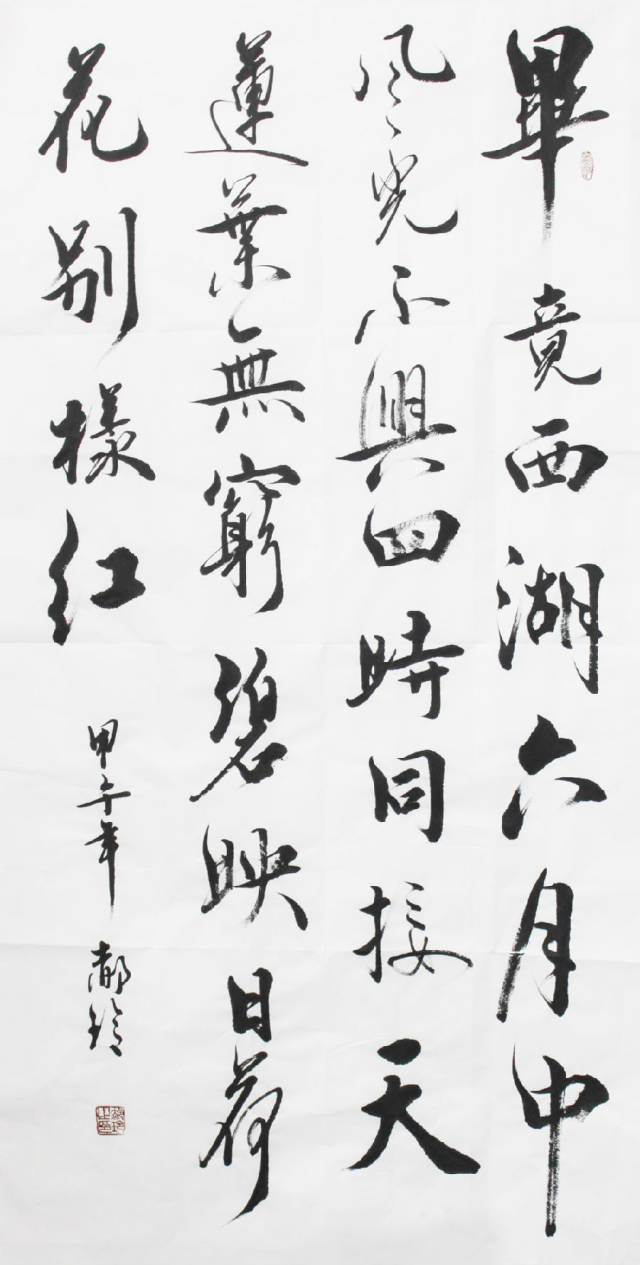 畢竟西湖六月中
風光不與四時同接天
蓮葉無窮碧映日荷
花别樣红
甲午年 郝玲